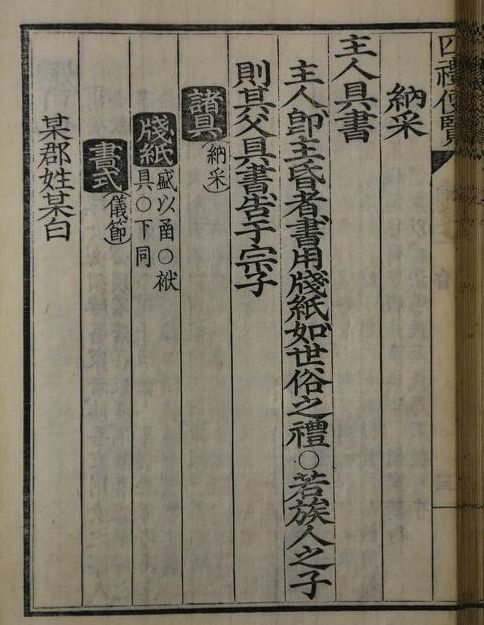 四禮便覽
納采
主人具書
主人卽主昏者書用牋紙如世俗之禮○若族人之子
則其父具書告于宗子
諸具（納采）
牋紙 盛以函○袱
具○下同
書式（儀節）
某郡姓某白